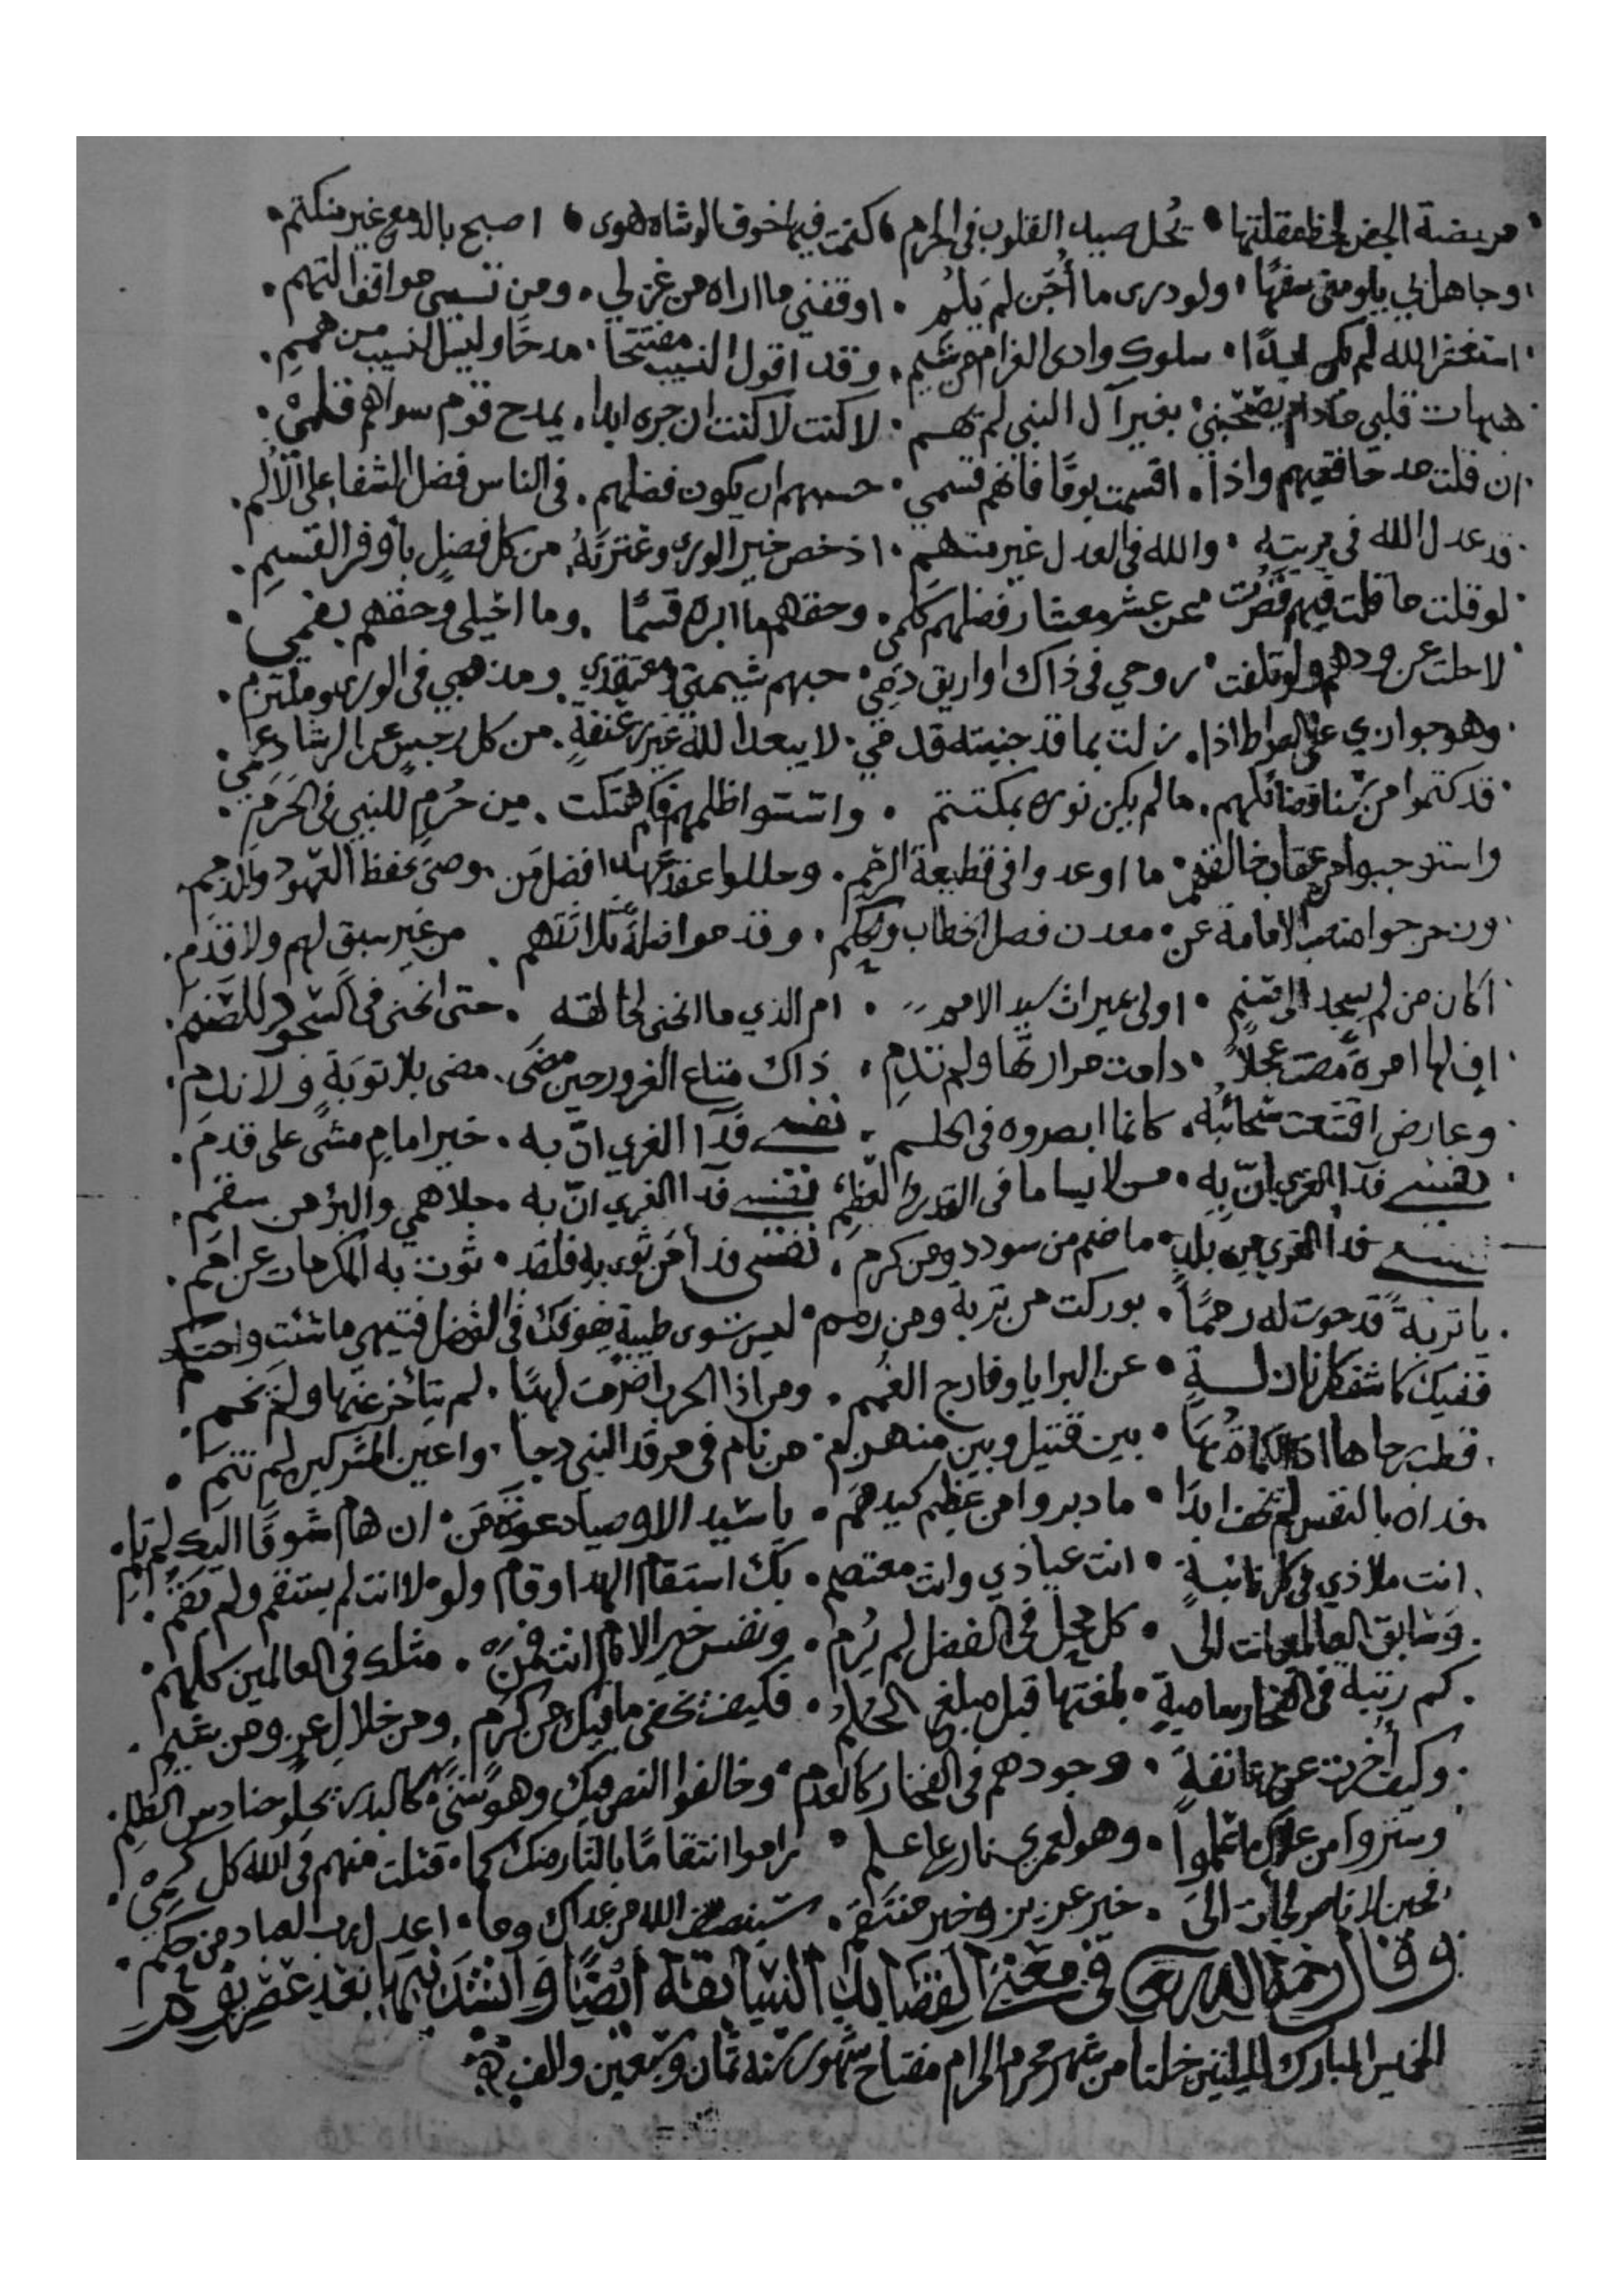 مريضة الجفن لحظ مقلتها • تحل صيد القلوب في الحرم • كتمت فيها خوف الوشاه هوى • اصبح بالدمع غير منكتم •
وجاهل بي يلومني سفهًا • ولو درى ما أجن لم يلم • اوقفني ما اراه من غزلي • ومن نسيبي مواقف التهم •
استغفر الله لم يكن ابدًا • سلوك وادى الغرام من شيم • وقد اقول النسيب مفتتحا • مدحًا وليس النسيب من هممي •
هيهات قلبي ما دام يصحبني • بغير آل النبي لم يهم • لا كنت لا كنت ان جرى ابدا • يمدح قوم سواهم قلمي •
ان قلت مدحا ففيهم واذا • اقسمت يومًا فانهم قسمي • حسبهم ان يكون فضلهم • في الناس فضل الشفا على الالم •
قد عدل الله في بريته • والله في العدل غير متهم • اذ خص خير الورى وعترته • من كل فضل بأوفر القسم •
لو قلت ما قلت فيهم قصرت • عن عشر معشار فضلهم كلمي • وحقهم ما ابره قسمًا • وما احيلى وحقهم بفمي •
لا حلت عن ودهم ولو تلفت • روحي في ذاك او اريق دمي • حبهم شيمتي ومعتقدي • ومذهبي في الورى وملتزم •
وهو جوازي على الصراط اذا • زلت بما قد جنيته قدمي • لا يبعد الله غير عنفة • من كل رجس عن الرشاد عمي •
قد كتموا من سنا فضائلهم • ما لم يكن نوره بمكتتم • واسسوا ظلمهم فكم هتكت • من حرم للنبي في الحرم •
واستوجبوا من عقاب خالقهم • ما اوعدوا في قطيعة الرحم • وحللوا عقد عهد افضل من • وصى بحفظ العهود والذمم •
وزحزحوا منصب الامامة عن • معدن فصل الخطاب والحكم • وقدموا ضلة ثلاثتهم • من غير سبق لهم ولا قدم •
اكان من لم يسجد الى صنم • اولى بميراث سيد الامم • ام الذي ما انحنى لخالقه • حتى انحنى في السجود للصنم •
اف لها امرة مضت عجلاً • دامت مرارتها ولم تدم • ذاك متاع الغرور حين مضى • مضى بلا توبة ولا ندم •
وعارض اقشعت سحائبه • كانما ابصروه في الحلم • نفسي فدآ الغري ان به • خير امام مشى على قدم •
نفسي فدآ الغري ان به • من لا يساما في القدر والعظم • نفسي فدآ الغري ان به • جلا همي والبرؤ من سقم •
نفسي فدا الغري من بلد • ما ضم من سودد ومن كرم • نفسي فدأ من ثوى به فلقد • ثوت به المكرمات عن امم •
يا تربة قد حوت له رممًا • بوركت من تربة ومن رمم • ليس سوى طيبة يفوقك في الفضل فتيهي ما شئت واحتكم
ففيك كاشف كل نازلة • عن البرايا وفارج الغمم • ومن اذا الحرب اضرمت لهبًا • لم يتأخر عنها ولم يخم •
قطب رحاها اذا الكماة بها • بين قتيل وبين منهزم • من نام في مرقد النبي دجا • واعين المشركين لم تنم •
فداه بالنفس لم يخف ابدًا • ما دبروا من عظيم كيدهم • يا سيد الاوصيا دعوة من • ان هام شوقا اليك لم يلم •
انت ملاذي في كل نائبة • انت عياذي وانت معتصم • بك استقام الهدا وقام ولو • لا انت لم يستقم ولم يقم •
وسابق العالمين انت الى • كل محل في الفضل لم يُرم • ونفس خير الانام انت فمن • مثلك في العالمين كلهم •
كم رتبة في الفخار سامية • بلغتها قبل مبلغ الحلم • فكيف تخفى ما فيك من كرم • ومن خلال عز ومن شيم •
وكيف أخرت عن زعانفة • وجودهم في الفخار كالعدم • وخالفوا النص فيك وهو سنى • كالبدر يجلو حنادس الظلم •
وستروا من علاك ما علموا • وهو لعمري نار على علم • راموا انتقامًا بالثار منك كما • قتلت منهم في الله كل كمي •
فحين لا ناصر لجأت الى • خير عزيز وخير منتقم • سينصف الله من عداك وما • اعدل رب العباد من حكم •
وقال رحمه الله تعالى في معنى القصايد السابقة ايضًا وانشد بها بعد عصر يوم
الخميس المبارك لليلتين خلتا من شهر محرم الحرام مفتاح شهور سنه ثمان وسبعين والف